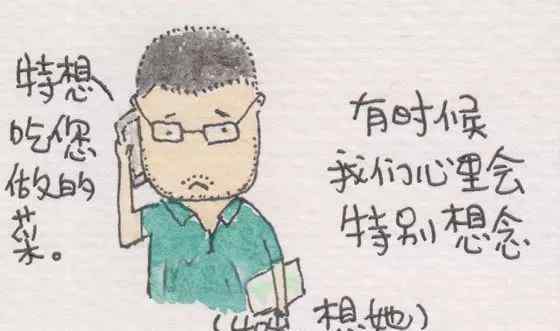 特想
吃您
做的
菜。
有时候
我们心里会
特别想念
想她)